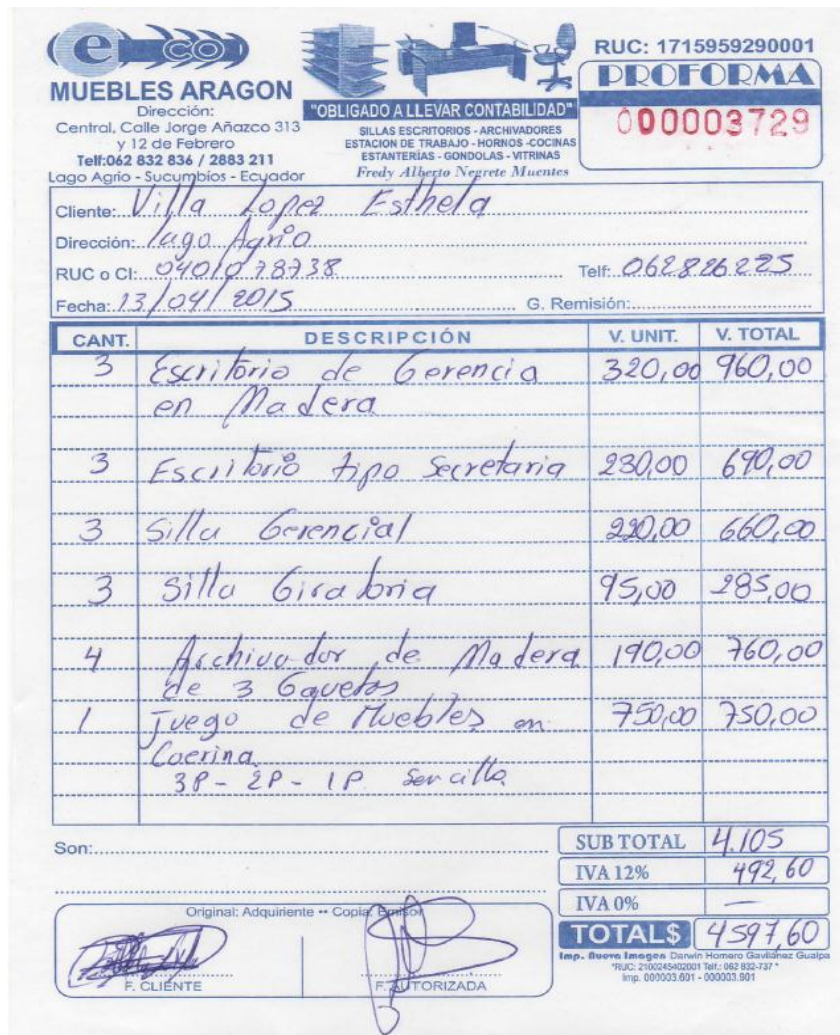 eco
MUEBLES ARAGON
Dirección:
Central, Calle Jorge Añazco 313
y 12 de Febrero
Telf:062 832 836 / 2883 211
Lago Agrio - Sucumbíos - Ecuador
"OBLIGADO A LLEVAR CONTABILIDAD"
SILLAS ESCRITORIOS - ARCHIVADORES
ESTACION DE TRABAJO - HORNOS -COCINAS
ESTANTERÍAS - GONDOLAS - VITRINAS
Fredy Alberto Negrete Muentes
RUC: 1715959290001
PROFORMA
000003729
Cliente: Villa Lopez Esthela
Dirección: lago Agrio
RUC o CI: 0401078738 Telf: 062826225
Fecha: 13/04/2015 G. Remisión:
CANT. DESCRIPCIÓN V. UNIT. V. TOTAL
3 Escritorio de Gerencia 320,00 960,00
en Madera
3 Escritorio tipo Secretaria 230,00 690,00
3 Silla Gerencial 220,00 660,00
3 Silla Giratoria 95,00 285,00
4 Archivador de Madera 190,00 760,00
de 3 Gavetas
1 Juego de Muebles en 750,00 750,00
Cuerina
3P - 2P - 1P Sencillo
Son: SUB TOTAL 4.105
IVA 12% 492,60
IVA 0% —
TOTAL$ 4597,60
Original: Adquiriente •• Copia: Emisor
F. CLIENTE F. AUTORIZADA
Imp. Nueva Imagen Darwin Homero Gavilánez Gualpa
*RUC: 2100245402001 Telf.: 062 832-737 *
Imp. 000003.601 - 000003.901